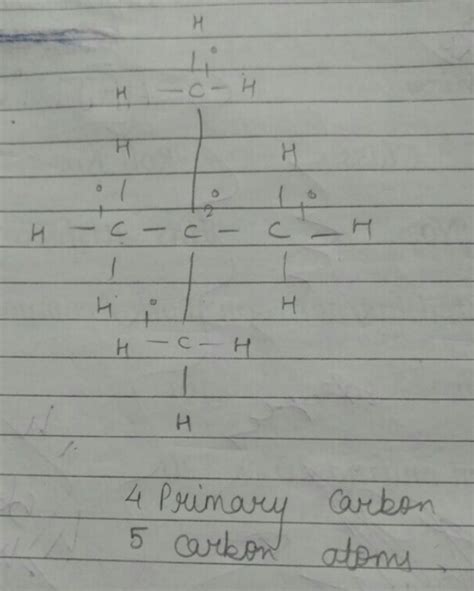 H
1°
H - C - H
H H
1° 2° 1°
H - C - C - C - H
H 1° H
H - C - H
H
4 Primary Carbon
5 carbon atoms